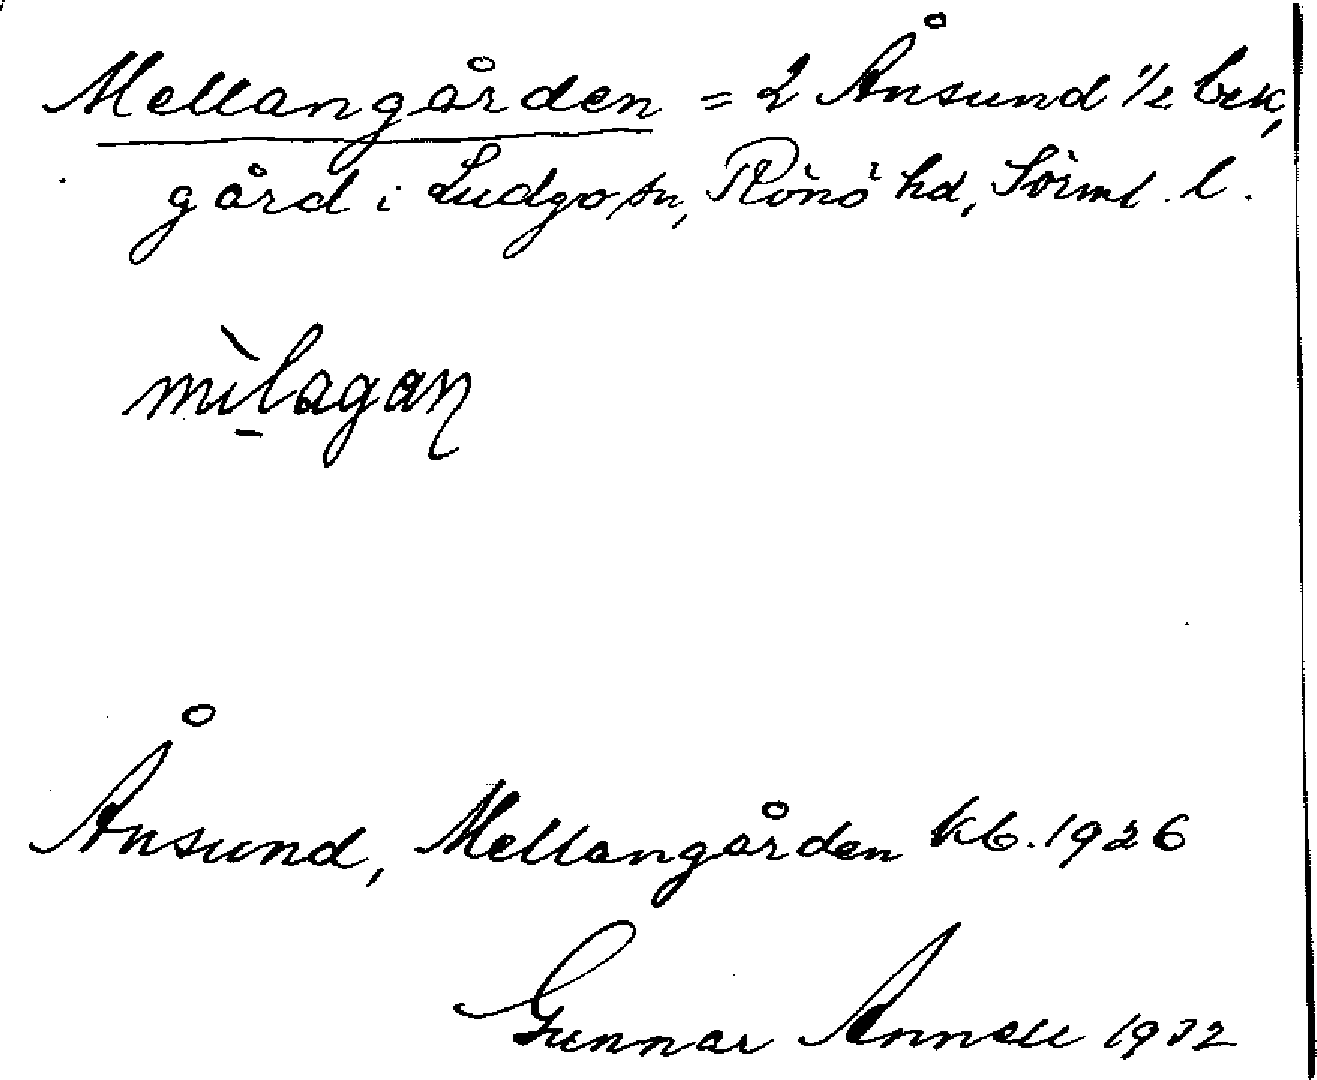 Mellangården = 2 Ånsund 1/2 bek,
gård i Ludgo sn, Rönö hd, Sörml. l.
mìlagaɳ
Ånsund, Mellangården kb. 1926
Gunnar Annell 1932